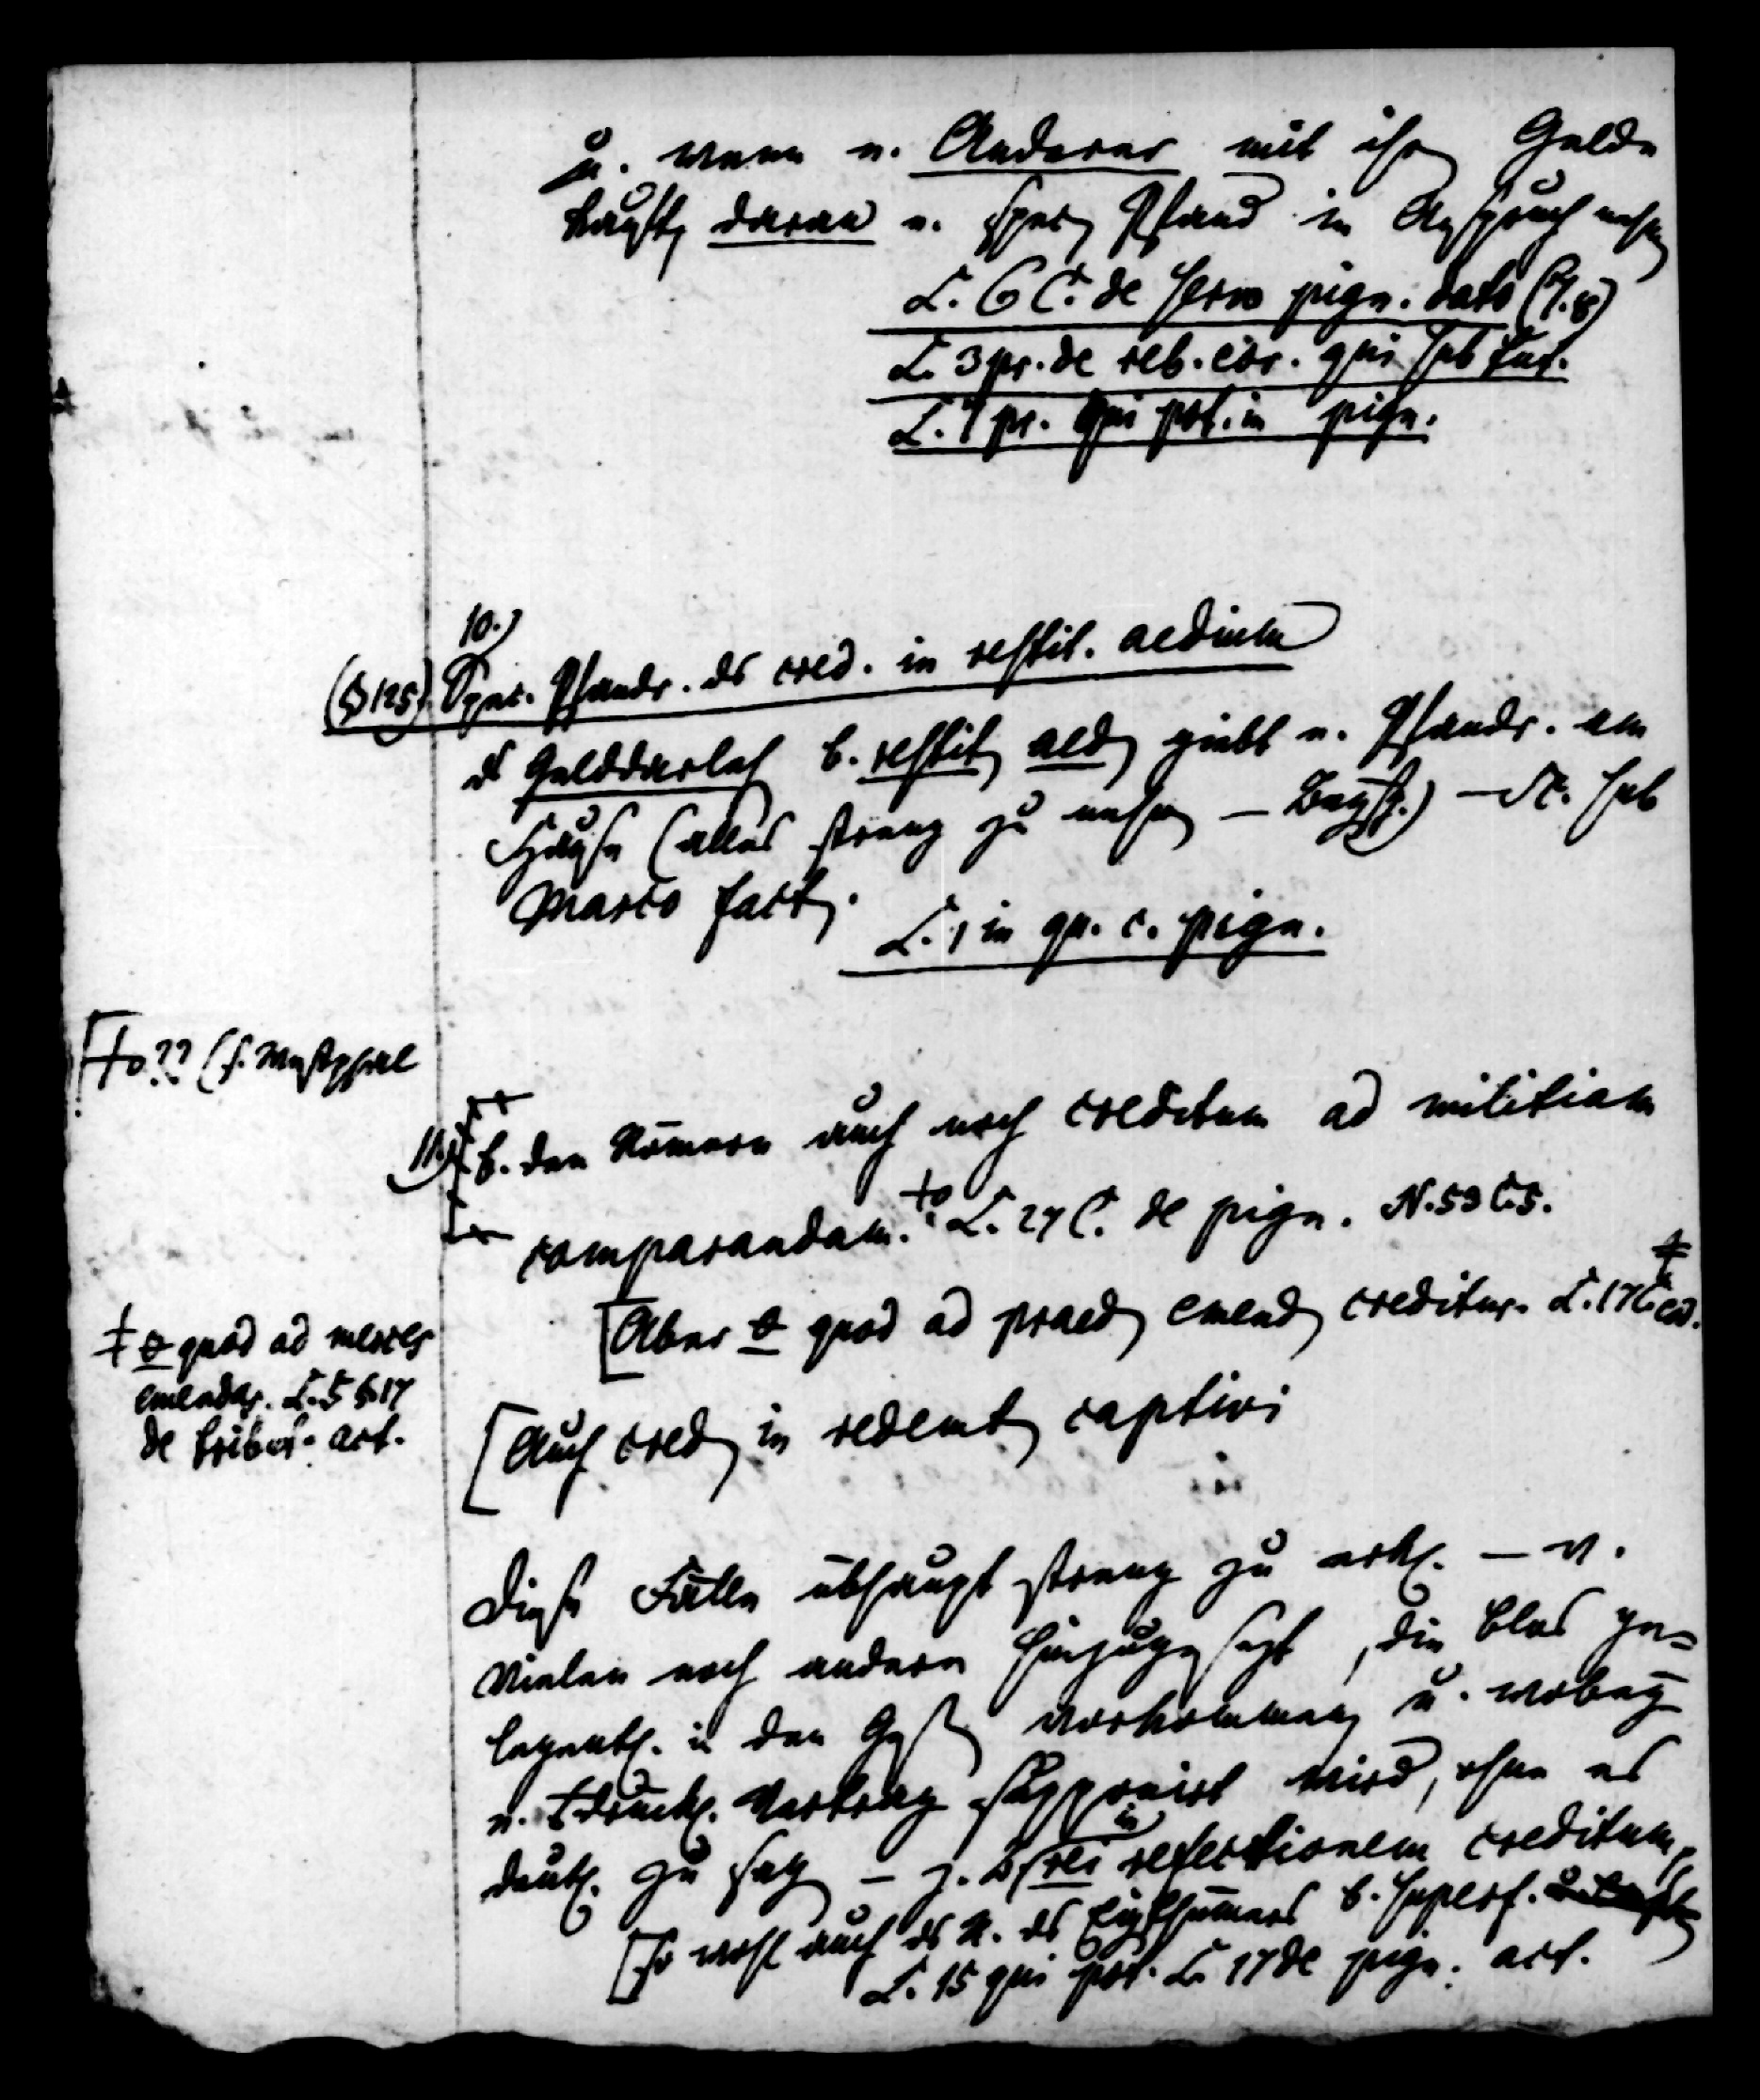 u. wenn e. Anderer mit ihr. Gelde
kauft, daran e. spec. Pfand in Anspruch nehm.
L. 6 C. de servo pign. dato (7.8)
L. 3 pr. de reb. eor. qui sub tut.
L. 7 pr. qui pot. in pign.
10.)
(§ 125) Spec. Pfandr. ds cred. in restit. aedium
ds Gelddarleh b. restit. aed. giebt e. Pfandr. am
Hause (alles streng zu nehm. – ) – SC. sub
Marco fact.
L. 1 in qu. c. pign.
[+o ?? (s. Westphal
11.) [b. den Römern auch noch creditum ad militiam
comparandam. +o L. 27 C. de pign. N. 53 C. 5.
[Aber θ quod ad praed. emend. creditur. L. 17 C. eod. ‡
‡ θ quod ad merces
emendas. L. 5 § 17
de tribut. act.
[Auch cred. in redemt. captivi
Diese Fälle übhaupt streng zu erkl. – v.
Vielen noch andere hinzugesezt, die blos ge=
legentl. in den Ges. vorkommen, u. wobey
e. Vertrag supponirt wird, ohne es
deutl. zu sag. – z. B. in rei refectionem creditum,
[so wohl auch ds R. ds Eigthümers b. superf.
L. 15 qui pot. L. 17 de pign. act.